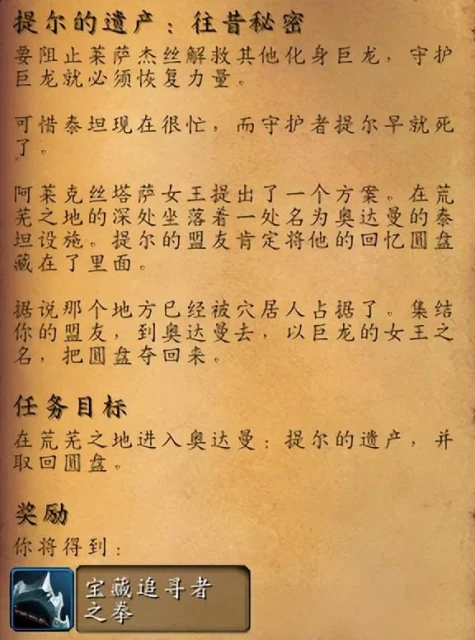 提尔的遗产：往昔秘密
要阻止莱萨杰丝解救其他化身巨龙，守护
巨龙就必须恢复力量。
可惜泰坦现在很忙，而守护者提尔早就死
了。
阿莱克丝塔萨女王提出了一个方案。在荒
芜之地的深处坐落着一处名为奥达曼的泰
坦设施。提尔的盟友肯定将他的回忆圆盘
藏在了里面。
据说那个地方已经被穴居人占据了。集结
你的盟友，到奥达曼去，以巨龙的女王之
名，把圆盘夺回来。
任务目标
在荒芜之地进入奥达曼：提尔的遗产，并
取回圆盘。
奖励
你将得到：
宝藏追寻者
之拳